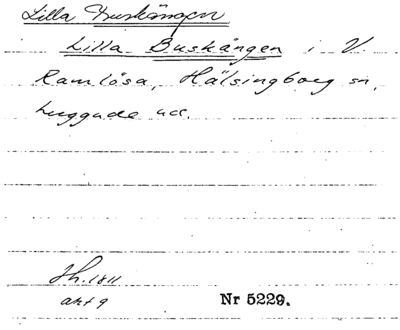 Lilla Buskängen
Lilla Buskängen i V.
Ramlösa, Hälsingborg sn,
huggade acc.
Sh. 1811
akt 9
Nr 5229.